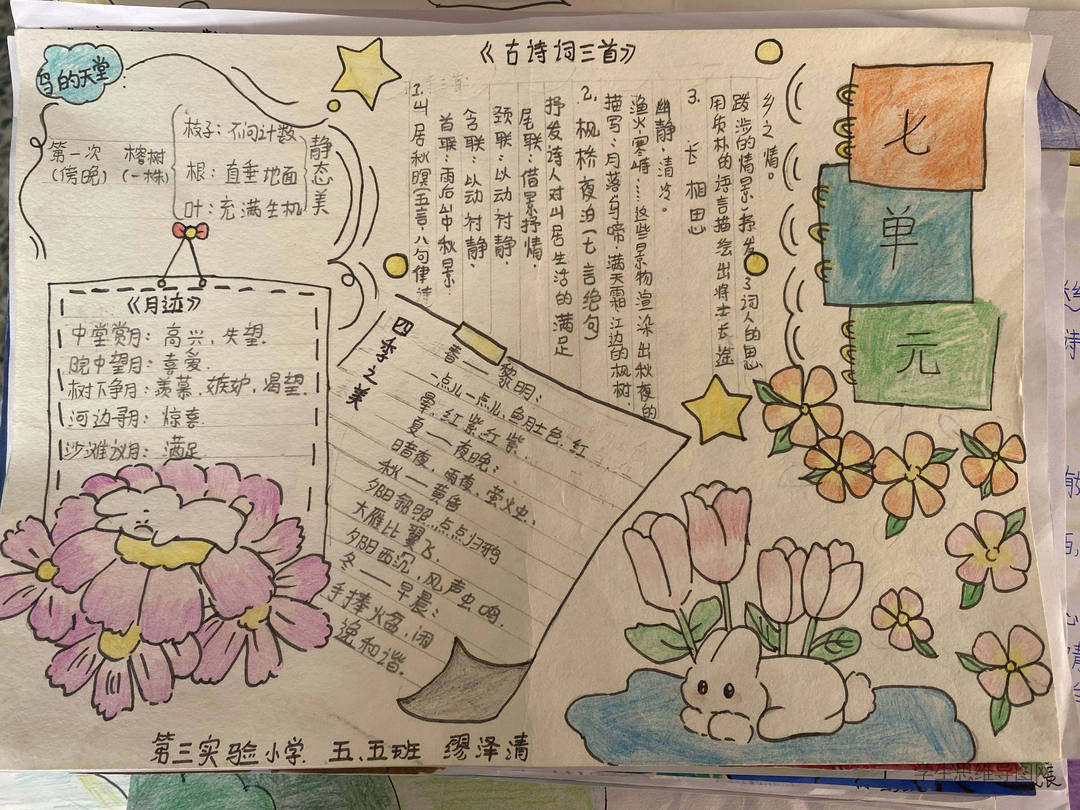 鸟的天堂
第一次
(傍晚)
榕树
(一株)
枝子：不可计数
根：直垂地面
叶：充满生机
静态美
《月迹》
中堂赏月：高兴，失望.
院中望月：喜爱.
树下争月：羡慕，嫉妒，渴望.
河边寻月：惊喜.
沙滩议月：满足
《古诗词三首》
居秋暝(五言，八句律诗
首联：雨后山中秋景
含联：以动衬静.
颈联：以动衬静.
尾联：借景抒情，
抒发诗人对山居生活的满足
2.枫桥夜泊(七言绝句
描写：月落乌啼，满天霜，江边的枫树，
渔火，寒山寺……这些景物渲染出秋夜的
幽静，清冷。
3.长相思
用质朴的语言描绘出将士长途
跋涉的情景，抒发了词人的思
乡之情。
四季之美
春——黎明：
一点儿一点儿，鱼肚色，红
晕，红紫红紫.
夏——夜晚：
暗夜，雨夜，萤火虫、
秋——黄昏
夕阳，点点归鸦
大雁比翼飞，
夕阳西沉，风声虫鸣，
冬——早晨：
手捧火盆，闲
逸和谐.
七
单
元
第三实验小学 五、五班 缪泽清
学生思维导图展